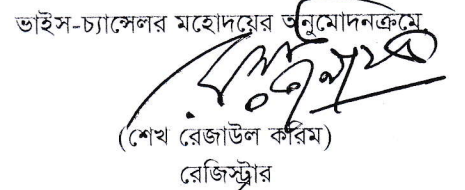 ভাইস-চ্যান্সেলর মহোদয়ের অনুমোদনক্রমে
(শেখ রেজাউল করিম)
রেজিস্ট্রার